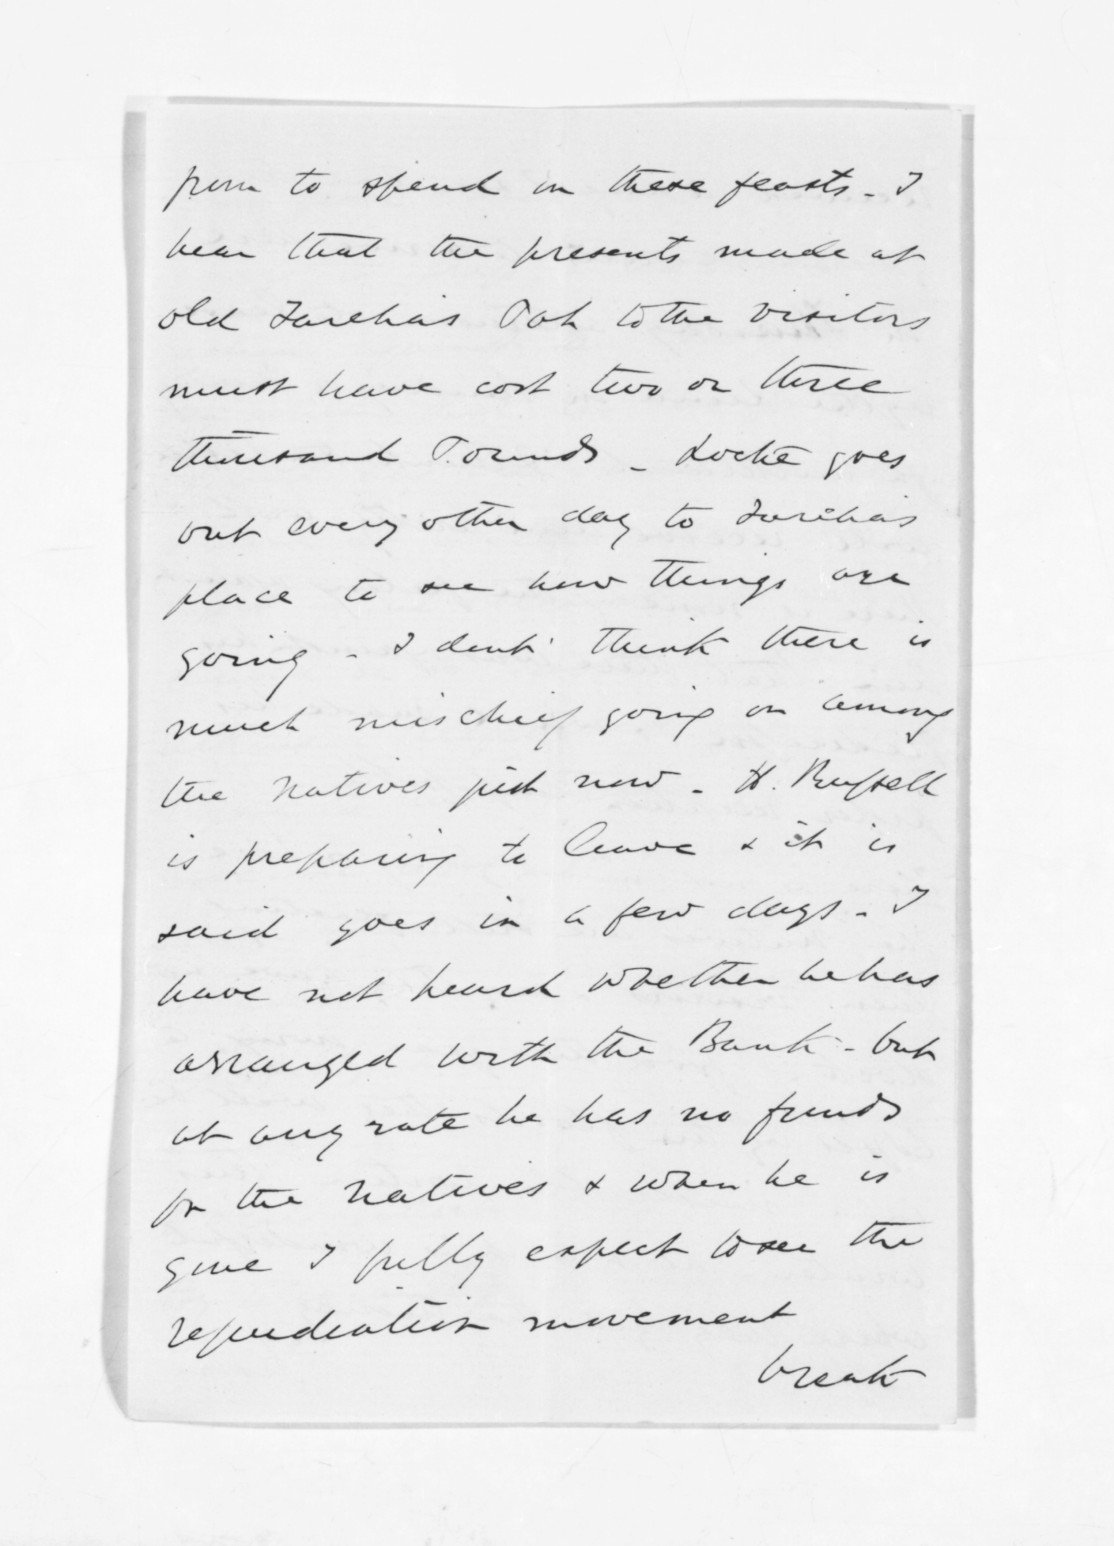 from to spend on these feasts - I
hear that the presents made at
old Tarehas Pah to the visitors
must have cost two or three
thousand Pounds - Locke goes
out every other day to Tarehas
place to see how things are
going - I dont think there is
much mischief going on among
the Natives just now - H. Russell
is preparing to leave & it is
said goes in a few days - I
have not heard whether he has
arranged with the Bank - but
at any rate he has no funds
for the Natives & when he is
gone I fully expect to see the
repudiation movement
break